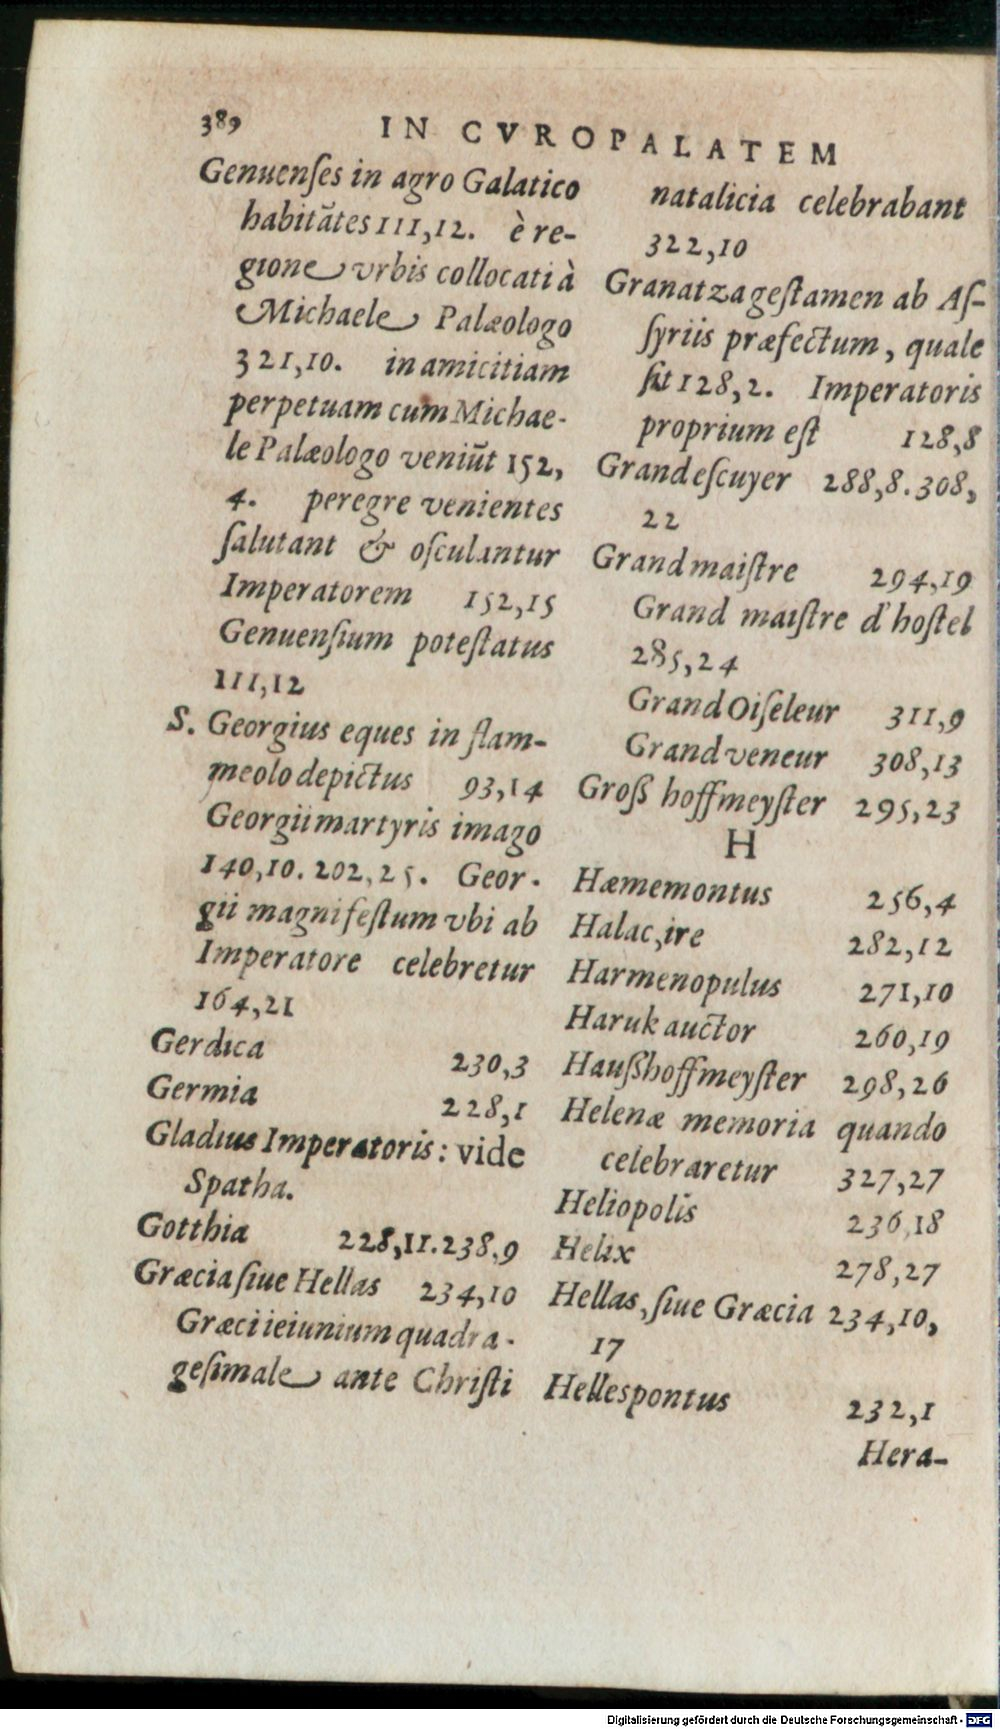 389 IN CVROPALATEM
Genuenſes in agro Galatico
habitãtes 111,12. è re-
gione vrbis collocati à
Michaele Palæologo
321,10. in amicitiam
perpetuam cum Michae-
le Palæologo veniũt 152,
4. peregre venientes
ſalutant & oſculantur
Imperatorem 152,15
Genuenſium poteſtatus
111,12
S. Georgius eques in flam-
meolo depictus 93,14
Georgii martyris imago
140,10. 202,25. Geor-
gii magni feſtum vbi ab
Imperatore celebretur
164,21
Gerdica 230,3
Germia 228,1
Gladius Imperatoris: vide
Spatha.
Gotthia 228,11.238,9
Græcia ſiue Hellas 234,10
Græci ieiunium quadra-
geſimale ante Chriſti
natalicia celebrabant
322,10
Granatza geſtamen ab Aſ-
ſyriis præfectum, quale
ſit 128,2. Imperatoris
proprium eſt 128,8
Grand eſcuyer 288,8.308,
22
Grand maiſtre 294,19
Grand maiſtre d'hoſtel
285,24
Grand Oiſeleur 311,9
Grand veneur 308,13
Groß hoffmeyſter 295,23
H
Hæmemontus 256,4
Halac,ire 282,12
Harmenopulus 271,10
Haruk auctor 260,19
Haußhoffmeyſter 298,26
Helenæ memoria quando
celebraretur 327,27
Heliopolis 236,18
Helix 278,27
Hellas, ſiue Græcia 234,10,
17
Hellespontus 232,1
Hera-
Digitalisierung gefördert durch die Deutsche Forschungsgemeinschaft - DFG